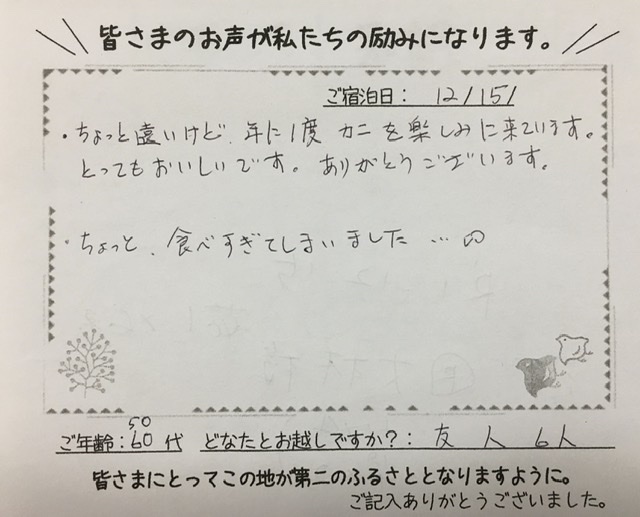 皆さまのお声が私たちの励みになります。
ご宿泊日: 12/15/
・ちょっと遠いけど、年に1度 カニを楽しみに来ています。
とってもおいしいです。ありがとうございます。
・ちょっと、食べすぎてしまいました…
50
ご年齢:60代 どなたとお越しですか?: 友人 6人
皆さまにとってこの地が第二のふるさととなりますように。
ご記入ありがとうございました。